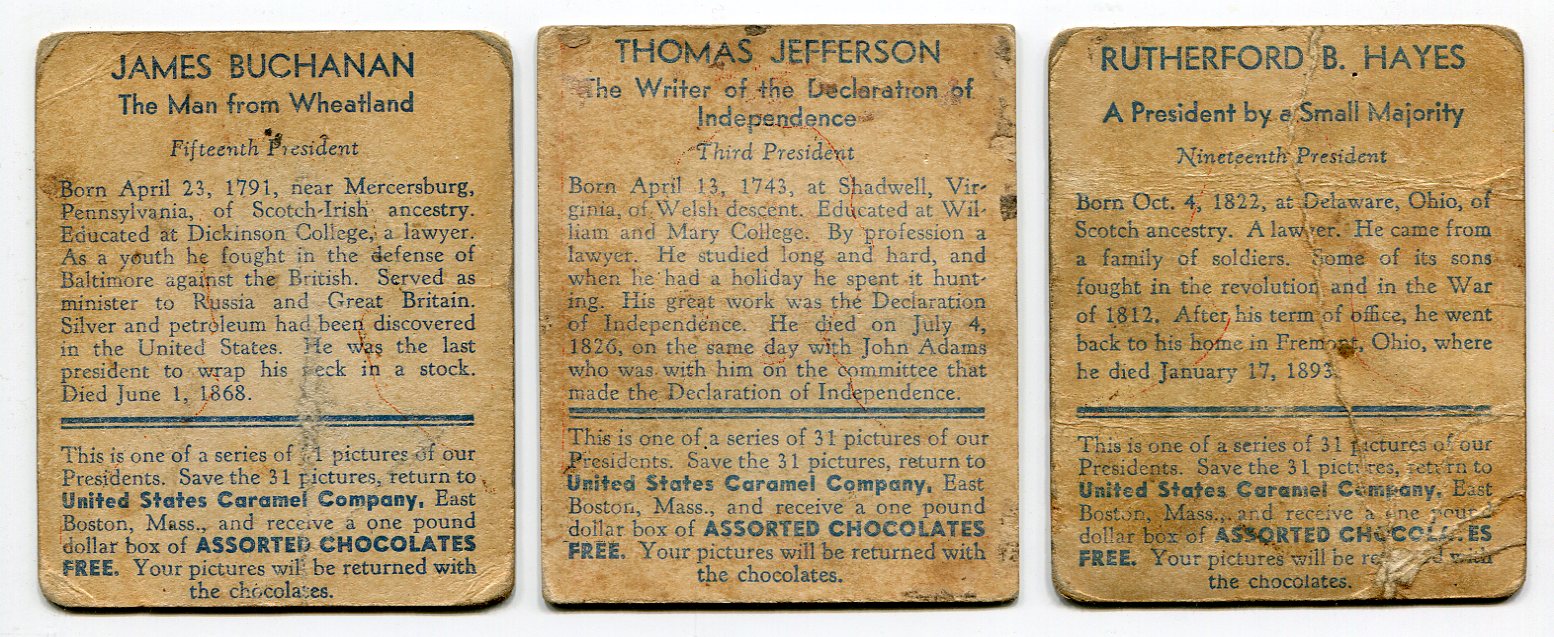 JAMES BUCHANAN
The Man from Wheatland
Fifteenth President
Born April 23, 1791, near Mercersburg,
Pennsylvania, of Scotch-Irish ancestry.
Educated at Dickinson College, a lawyer.
As a youth he fought in the defense of
Baltimore against the British. Served as
minister to Russia and Great Britain.
Silver and petroleum had been discovered
in the United States. He was the last
president to wrap his neck in a stock.
Died June 1, 1868.
This is one of a series of 31 pictures of our
Presidents. Save the 31 pictures, return to
United States Caramel Company, East
Boston, Mass., and receive a one pound
dollar box of ASSORTED CHOCOLATES
FREE. Your pictures will be returned with
the chocolates.
THOMAS JEFFERSON
The Writer of the Declaration of
Independence
Third President
Born April 13, 1743, at Shadwell, Vir-
ginia, of Welsh descent. Educated at Wil-
liam and Mary College. By profession a
lawyer. He studied long and hard, and
when he had a holiday he spent it hunt-
ing. His great work was the Declaration
of Independence. He died on July 4,
1826, on the same day with John Adams
who was with him on the committee that
made the Declaration of Independence.
This is one of a series of 31 pictures of our
Presidents. Save the 31 pictures, return to
United States Caramel Company, East
Boston, Mass., and receive a one pound
dollar box of ASSORTED CHOCOLATES
FREE. Your pictures will be returned with
the chocolates.
RUTHERFORD B. HAYES
A President by a Small Majority
Nineteenth President
Born Oct. 4, 1822, at Delaware, Ohio, of
Scotch ancestry. A lawyer. He came from
a family of soldiers. Some of its sons
fought in the revolution and in the War
of 1812. After his term of office, he went
back to his home in Fremont, Ohio, where
he died January 17, 1893.
This is one of a series of 31 pictures of our
Presidents. Save the 31 pictures, return to
United States Caramel Company, East
Boston, Mass., and receive a one pound
dollar box of ASSORTED CHOCOLATES
FREE. Your pictures will be returned with
the chocolates.